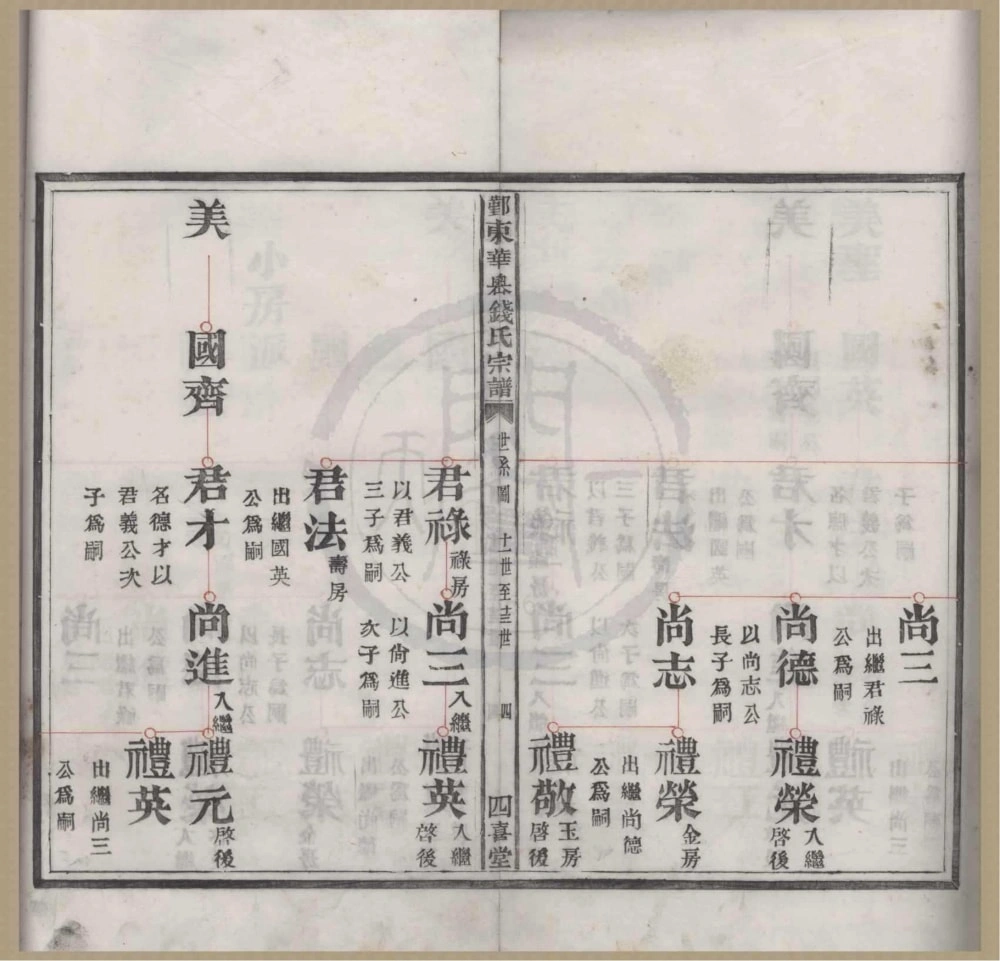 尚三
出繼君祿
公爲嗣
尚德
以尚志公
長子爲嗣
禮榮
入繼
啓後
尚志
禮榮
金房
出繼尚德
公爲嗣
禮敬
玉房
啓後
鄞東華嶴錢氏宗譜
世系圖 十一世至十五世
四
四喜堂
君祿
祿房
以君義公
三子爲嗣
尚三
入繼
以尚進公
次子爲嗣
禮英
入繼
啓後
君法
壽房
出繼國英
公爲嗣
美
國齊
君才
名德才以
君義公次
子爲嗣
尚進
入繼
禮元
啓後
禮英
出繼尚三
公爲嗣